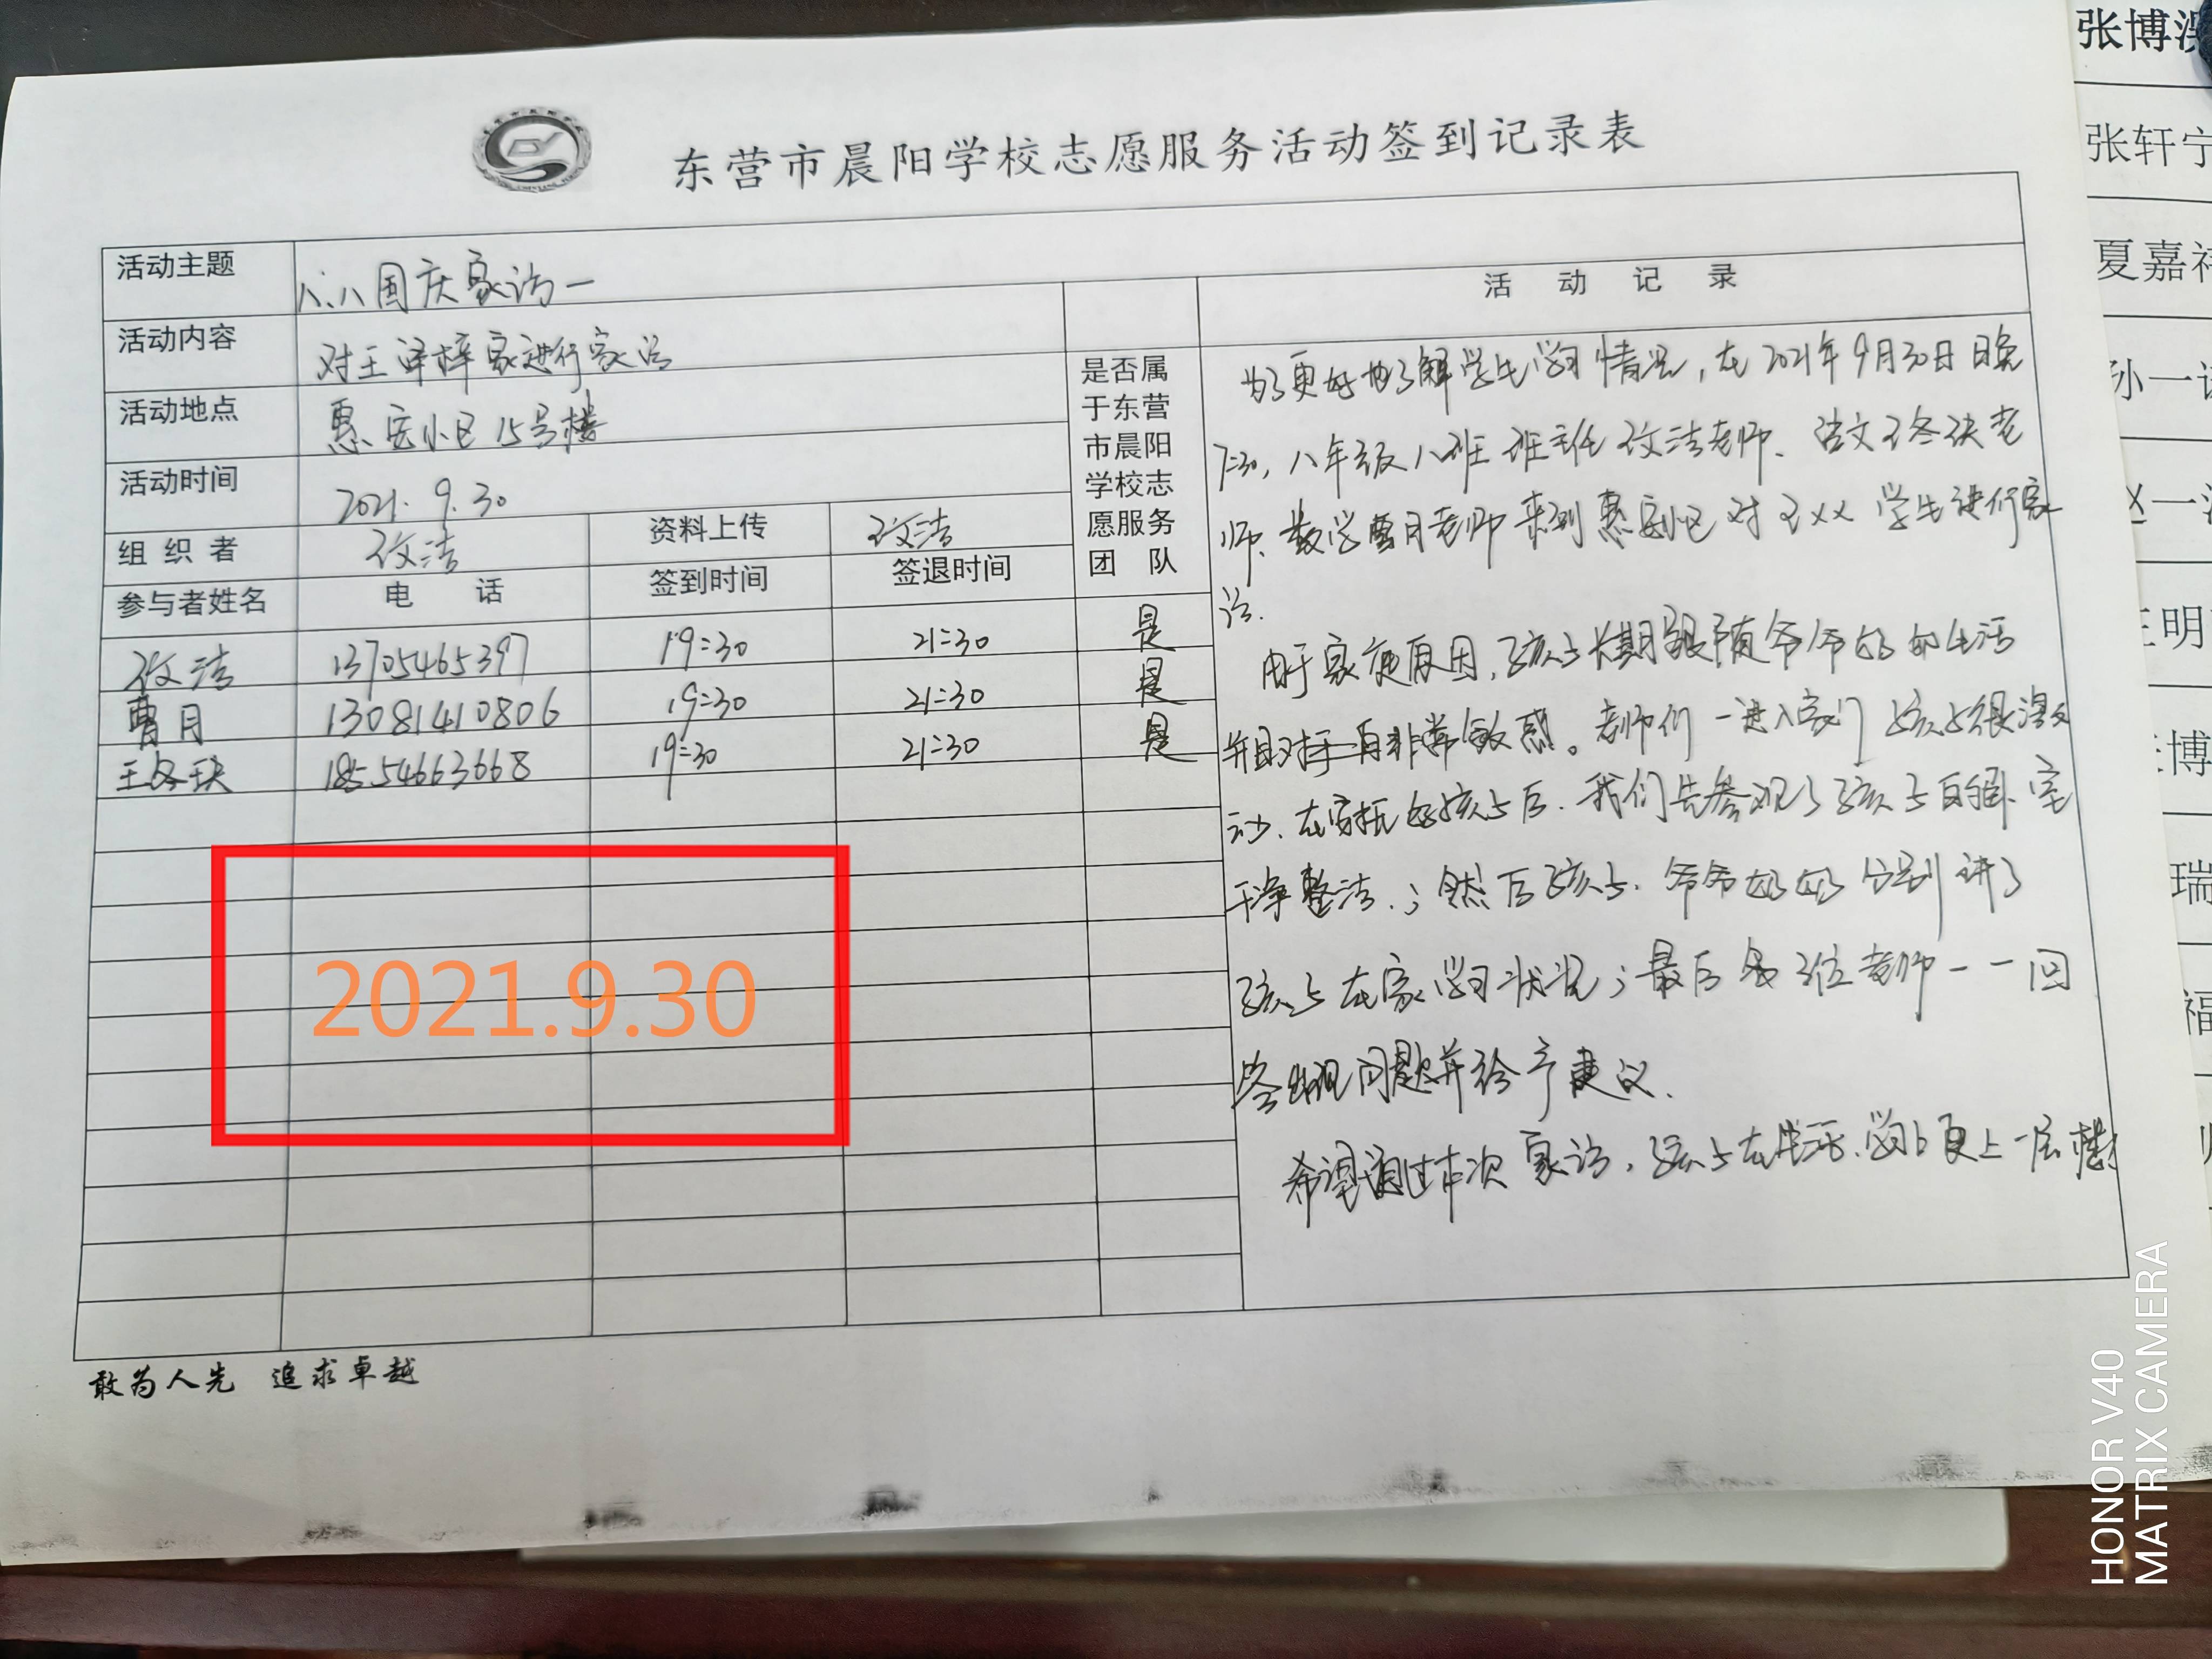 东营市晨阳学校志愿服务活动签到记录表
活动主题 八.八国庆家访一
活动内容 对王泽梓家进行家访
活动地点 惠安小区15号楼
活动时间 2021.9.30
组织者 资料上传
参与者姓名 电话 签到时间 签退时间
是否属
于东营
市晨阳
学校志
愿服务
团队
13705465397 19:30 21:30 是
曹月 13081410806 19:30 21:30 是
王冬玦 18554663668 19:30 21:30 是
2021.9.30
活动记录
为了更好地了解学生学习情况,在2021年9月30日晚
7:30,八年级八班班主任 老师、语文王冬玦老
师、数学曹月老师来到惠安小区对王××学生进行家
访.
由于家庭原因,孩子长期跟随爷爷奶奶生活
并且对 非常敏感。老师们一进入家门孩子很激
动.在安抚好孩子后.我们先参观了孩子的卧室
干净整洁.;然后孩子.爷爷奶奶分别讲了
孩子在家学习状况;最后各位老师一一回
答出现问题并给予建议.
希望通过本次家访,孩子在生活.学习上更上一层楼
敢为人先 追求卓越
张博
张轩宁
夏嘉祥
孙一
赵一
王明
博
瑞
福
HONOR V40
MATRIX CAMERA